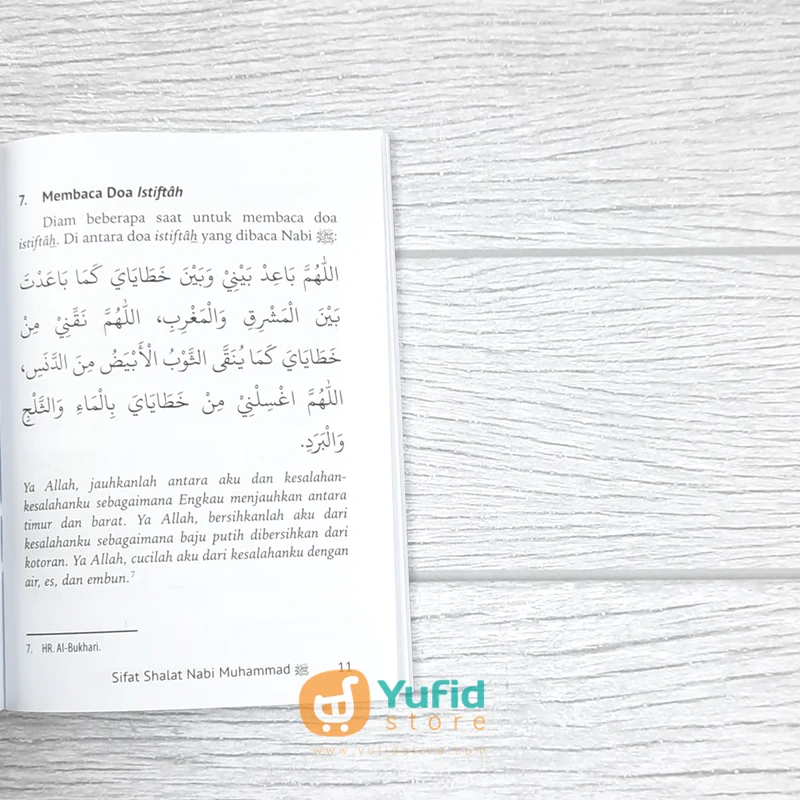 7. Membaca Doa Istiftâh
Diam beberapa saat untuk membaca doa
istiftâh. Di antara doa istiftâh yang dibaca Nabi ﷺ:
اللّٰهُمَّ بَاعِدْ بَيْنِيْ وَبَيْنَ خَطَايَايَ كَمَا بَاعَدْتَ
بَيْنَ الْمَشْرِقِ وَالْمَغْرِبِ، اللّٰهُمَّ نَقِّنِيْ مِنْ
خَطَايَايَ كَمَا يُنَقَّى الثَّوْبُ الْأَبْيَضُ مِنَ الدَّنَسِ،
اللّٰهُمَّ اغْسِلْنِيْ مِنْ خَطَايَايَ بِالْمَاءِ وَالثَّلْجِ
وَالْبَرَدِ.
Ya Allah, jauhkanlah antara aku dan kesalahan-
kesalahanku sebagaimana Engkau menjauhkan antara
timur dan barat. Ya Allah, bersihkanlah aku dari
kesalahanku sebagaimana baju putih dibersihkan dari
kotoran. Ya Allah, cucilah aku dari kesalahanku dengan
air, es, dan embun.⁷
7. HR. Al-Bukhari.
Sifat Shalat Nabi Muhammad ﷺ 11
Yufid
store
www.yufidstore.com